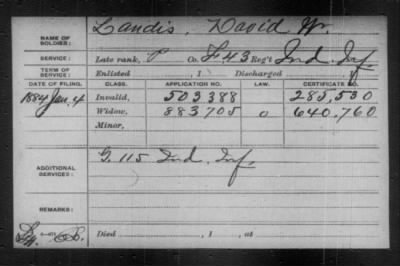 NAME OF SOLDIER: Landis, David W.
SERVICE: Late rank, P Co. F 43 Reg't Ind. Inf.
TERM OF SERVICE: Enlisted , 1 Discharged , 1
DATE OF FILING. CLASS. APPLICATION NO. LAW. CERTIFICATE NO.
1884 Jan. 4 Invalid, 503388 285,530
Widow, 883705 o 640,760
Minor,
ADDITIONAL SERVICES: G. 115 Ind. Inf.
REMARKS:
Died , 1 , at